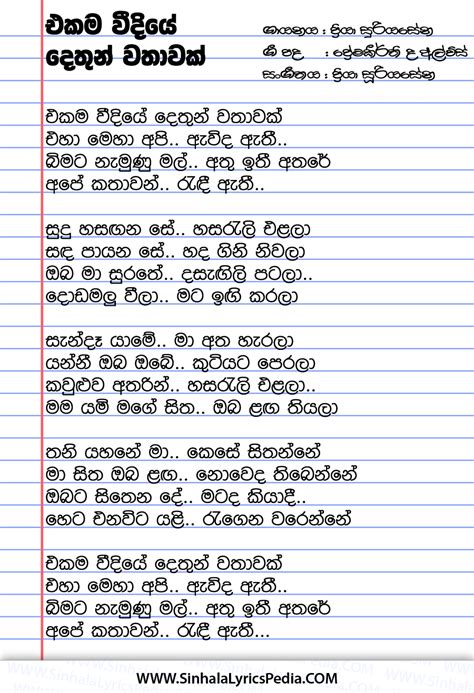 එකම වීදියේ
දෙතුන් වතාවක්
ගායනය : ප්‍රියා සූරියසේන
ගී පද : ප්‍රේමකීර්ති ද අල්විස්
සංගීතය : ප්‍රියා සූරියසේන
එකම වීදියේ දෙතුන් වතාවක්
එහා මෙහා අපි.. ඇවිද ඇතී..
බිමට නැමුණු මල්.. අතු ඉතී අතරේ
අපේ කතාවන්.. රැඳී ඇතී..
සුදු හසඟන සේ.. හසරැලි එළලා
සඳ පායන සේ.. හද ගිනි නිවලා
ඔබ මා සුරතේ.. දසැඟිලි පටලා..
දොඩමලු වීලා.. මට ඉඟි කරලා
සැන්දෑ යාමේ.. මා අත හැරලා
යන්නී ඔබ ඔබේ.. කුටියට පෙරලා
කවුළුව අතරින්.. හසරැලි එළලා..
මම යමි මගේ සිත.. ඔබ ළඟ තියලා
තනි යහනේ මා.. කෙසේ සිතන්නේ
මා සිත ඔබ ළඟ.. නොවෙද තිබෙන්නේ
ඔබට සිතෙන දේ.. මටද කියාදී..
හෙට එනවිට යළි.. රැගෙන වරෙන්නේ
එකම වීදියේ දෙතුන් වතාවක්
එහා මෙහා අපි.. ඇවිද ඇතී..
බිමට නැමුණු මල්.. අතු ඉතී අතරේ
අපේ කතාවන්.. රැඳී ඇතී...
WWW.SinhalaLyricsPedia.COM